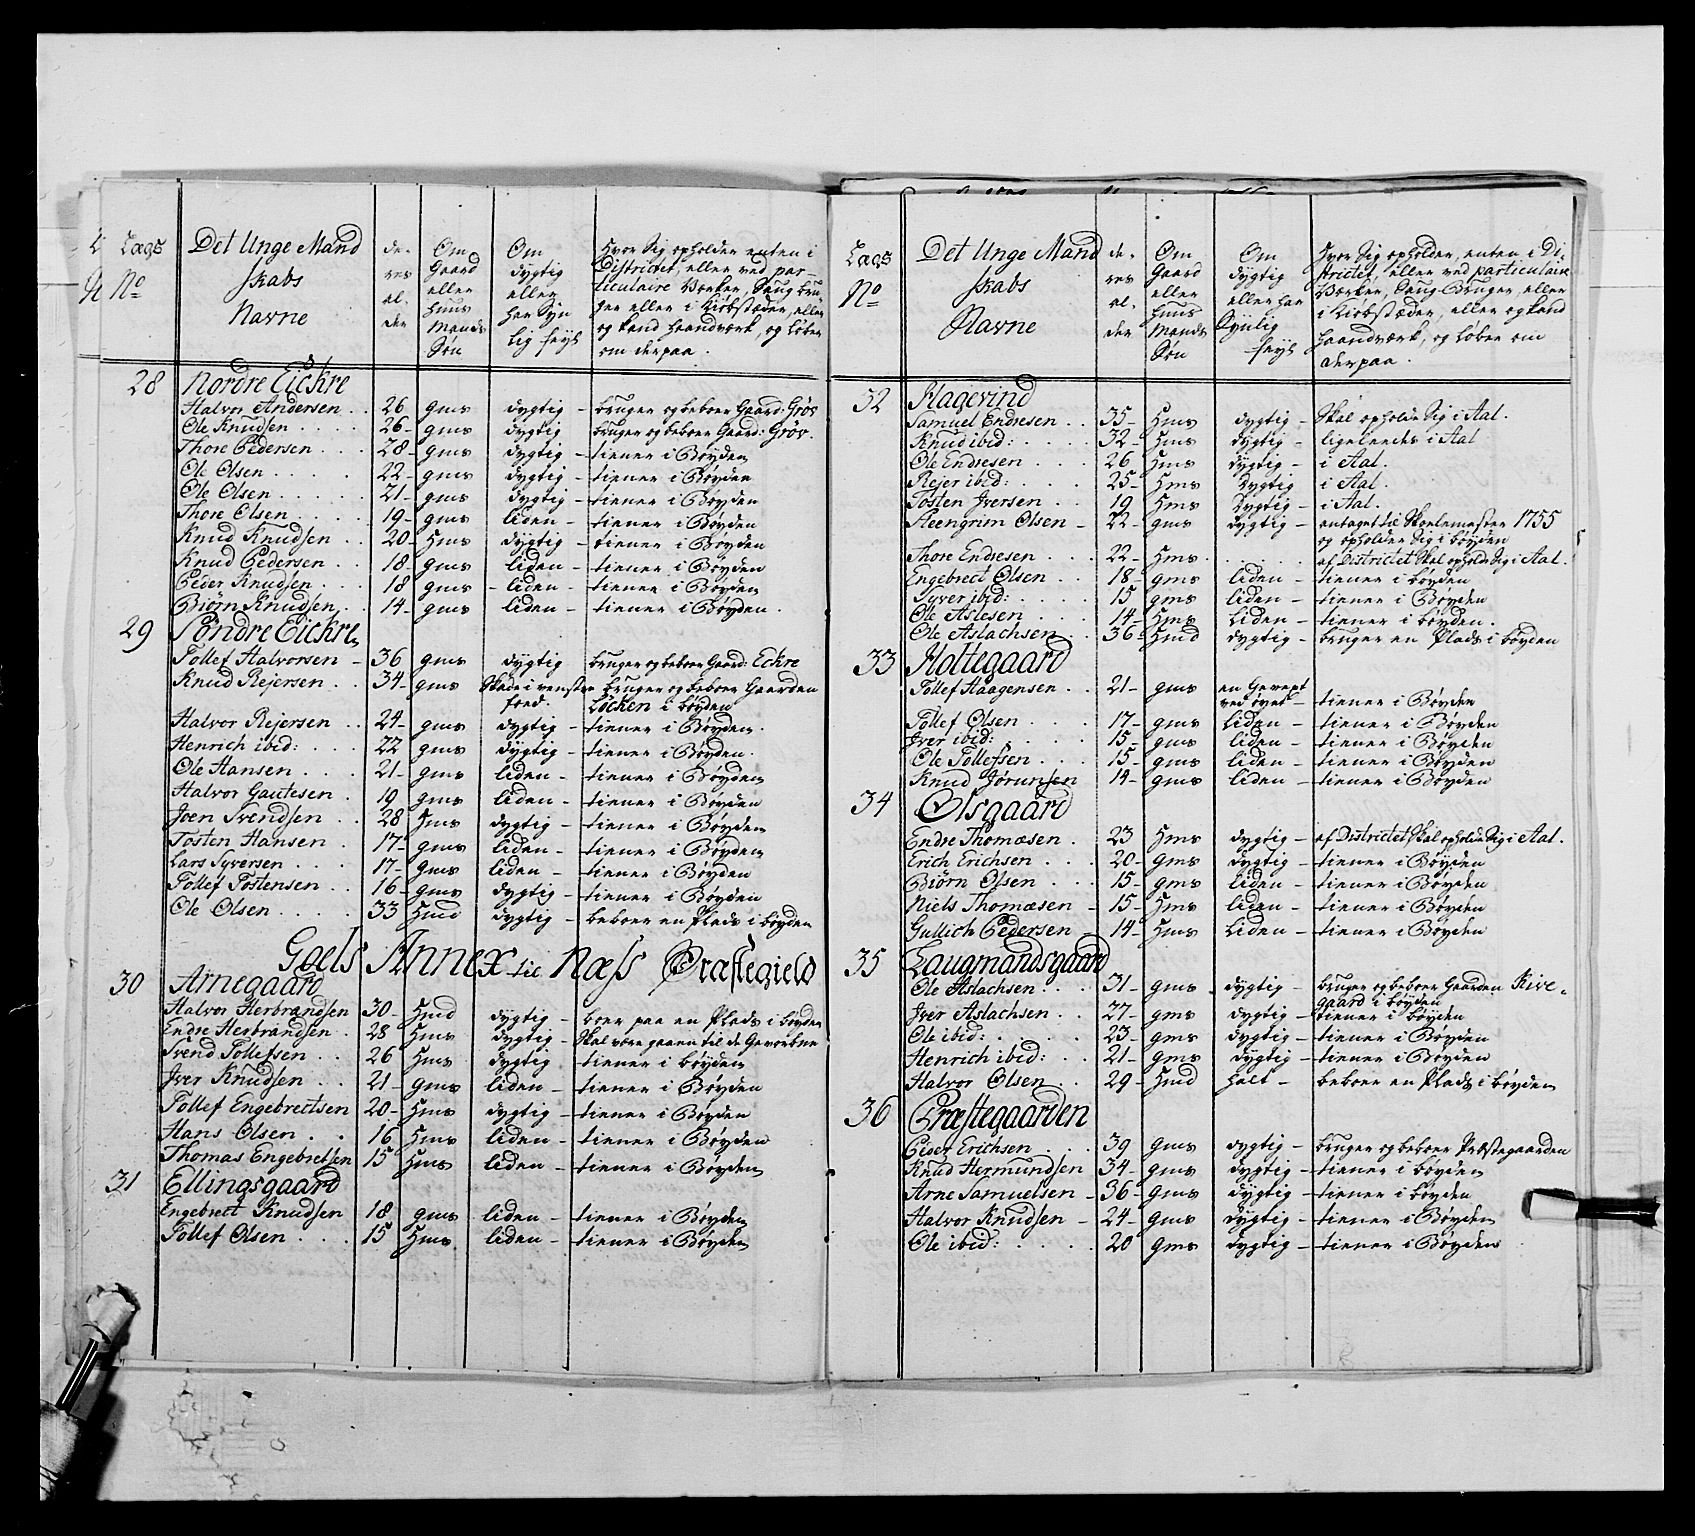 Lægs Det Unge Mand de- Om Om Hvor Sig opholder enten i
No skabs res Gaard dygtig Districtet, eller ved par-
Navne al- eller eller ticulaire Værker, Saug bru-
der huus har Syn ger eller i Kiøbstæder, eller
Mands lig feyl og kand haandværk, og løber
Søn om derpaa.
28 Nordre Eickre
Halvor Andersen . . 26 gms dygtig - bruger og beboer Gaard: Grøv
Ole Knudsen . . . . 26- gms dygtig bruger og beboer Gaard: Grøv.
Thore Pedersen . . . 28- gms dygtig - tiener i Bøyden
Ole Olsen . . . . 22- gms dygtig - tiener i Bøyden
Ole Olsen . . . . . 21- gms dygtig - tiener i Bøyden
Thore Olsen . . . . 19- gms liden - tiener i Bøyden
Knud Knudsen . . 20- Hms dygtig - tiener i Bøyden
Knud Pedersen . . 18- gms liden - tiener i Bøyden
Peder Knudsen . . . 18 gms - liden - tiener i Bøyden
Biørn Knudsen . . 14- gms liden - tiener i Bøyden.
29 Søndre Eickre
Tollef Halvorsen - 36 gms dygtig bruger og beboer Gaard: Eckre
Knud Rejersen . . 34- gms Skade i venster bruger og beboer Gaarden
foed. Løcken i bøyden
Halvor Rejersen . . 24- gms dygtig - tiener i Bøyden.
Henrich ibid: . . . . 22 gms dygtig - tiener i Bøyden.
Ole Hansen . . . 21- gms liden - tiener i Bøyden
Halvor Gautesen . 19 gms liden - tiener i Bøyden
Joen Svendsen . . 28 Hms dygtig - tiener i Bøyden
Tosten Hansen . 17- gms liden - tiener i Bøyden
Lars Syversen . . 17- gms liden - tiener i Bøyden
Tollef Tostensen . . 16- gms dygtig - tiener i Bøyden
Ole Olsen . . . . 33 Hmd dygtig - beboer en Plads i bøyden
Goels Annex til Næss Præstegield
30 Arnegaard
Halvor Herbrandsen 30- Hmd dygtig - boer paa en Plads i bøyden
Endre Herbrandsen . 28 Hms dygtig - Skal være gaaen til de Gevorbne
Svend Tollefsen . . 26 Hms dygtig tiener i bøyden
Jver Knudsen . . 21- gms liden - tiener i Bøyden
Tollef Engebrectsen 20- Hms dygtig - tiener i Bøyden
Hans Olsen . . 16 Hms liden - tiener i Bøyden
Thomas Engebretsen 15 Hms liden - tiener i Bøyden
31 Ellingsgaard
Engebrect Knudsen 18 gms liden - tiener i Bøyden
Tollef Olsen . . . 15 Hms liden - tiener i Bøyden
Lægs Det Unge Mand de- Om Om Hvor Sig opholder, enten i Di-
No skabs res Gaard dygtig strictet, eller ved particulaire
Navne al- eller eller har Værker, Saug-Bruger, eller
der huus Synlig i Kiøbstæder, eller og kand
Mands feyl haandværk, og løber om
Søn derpaa.
32 Hagevind
Samuel Endresen . . 35- Hms dygtig - Skal opholde Sig i Aal.
Knud ibid: . . . . 32- Hms dygtig - ligeledes i Aal
Ole Endresen . . . 26 Hms dygtig - i Aal.
Rejer ibid: . . . . 25- Hms dygtig i Aal.
Tosten Jversen . . . 19 Hms dygtig - i Aal.
Steengrim Olsen - 22- gms dygtig - antaget til Skolemester 1755
og opholder Sig i bøyden
Thore Endresen . . . 22- Hms . . . . . af Districtet Skal opholde Sig i Aal.
Engebrect Olsen . . 18- gms liden - tiener i bøyden
Syver ibid: . . . . 15 gms liden - tiener i Bøyden
Ole Aslesen . . . 14- Hms liden - tiener i bøyden.
Ole Aslachsen . . 36- Hmd dygtig - bruger en Plads i bøyden
33 Hottegaard
Tollef Haagensen . . 21- gms en Gevext
ved øyet - tiener i Bøyden
Tollef Olsen . . . 17- gms liden - tiener i Bøyden
Jver ibid: . . . . 15- gms liden - tiener i Bøyden
Ole Tollefsen . . . 15- gms liden - tiener i Bøyden
Knud Jørunsen 14- gms liden - tiener i Bøyden
34 Olsgaard
Endre Thomæsen . 23 Hms dygtig - af Districtet Skal opholde Sig i Aal.
Erich Erichsen . . . 20- gms dygtig - tiener i Bøyden
Biørn Olsen . . . 15- gms liden - tiener i Bøyden
Niels Thomæsen - 15- Hms liden - tiener i Bøyden
Gullich Pedersen - 14- Hms liden - tiener i Bøyden
35 Laugmandsgaard
Ole Aslachsen . . . 31- gms - dygtig - bruger og beboer Gaarden Rive-
gaard i bøyden
Jver Aslachsen . . 27- gms dygtig - tiener i bøyden
Ole ibid: . . . . . 23- gms dygtig - tiener i Bøyden
Henrich ibid: . . . 21- gms dygtig - tiener i Bøyden
Halvor Olsen . . . 29- Hmd halt - beboer en Plads i bøyden
36 Præstegaarden
Peder Erichsen . . 39 gms dygtig - bruger og beboer Præstegaarden
Knud Hermundsen 34- gms dygtig - tiener i bøyden
Arne Samuelsen - 36- gms dygtig - tiener i bøyden
Halvor Knudsen - 24- gms dygtig - tiener i Bøyden
Ole ibid: . . . . . 20 gms dygtig - tiener i Bøyden